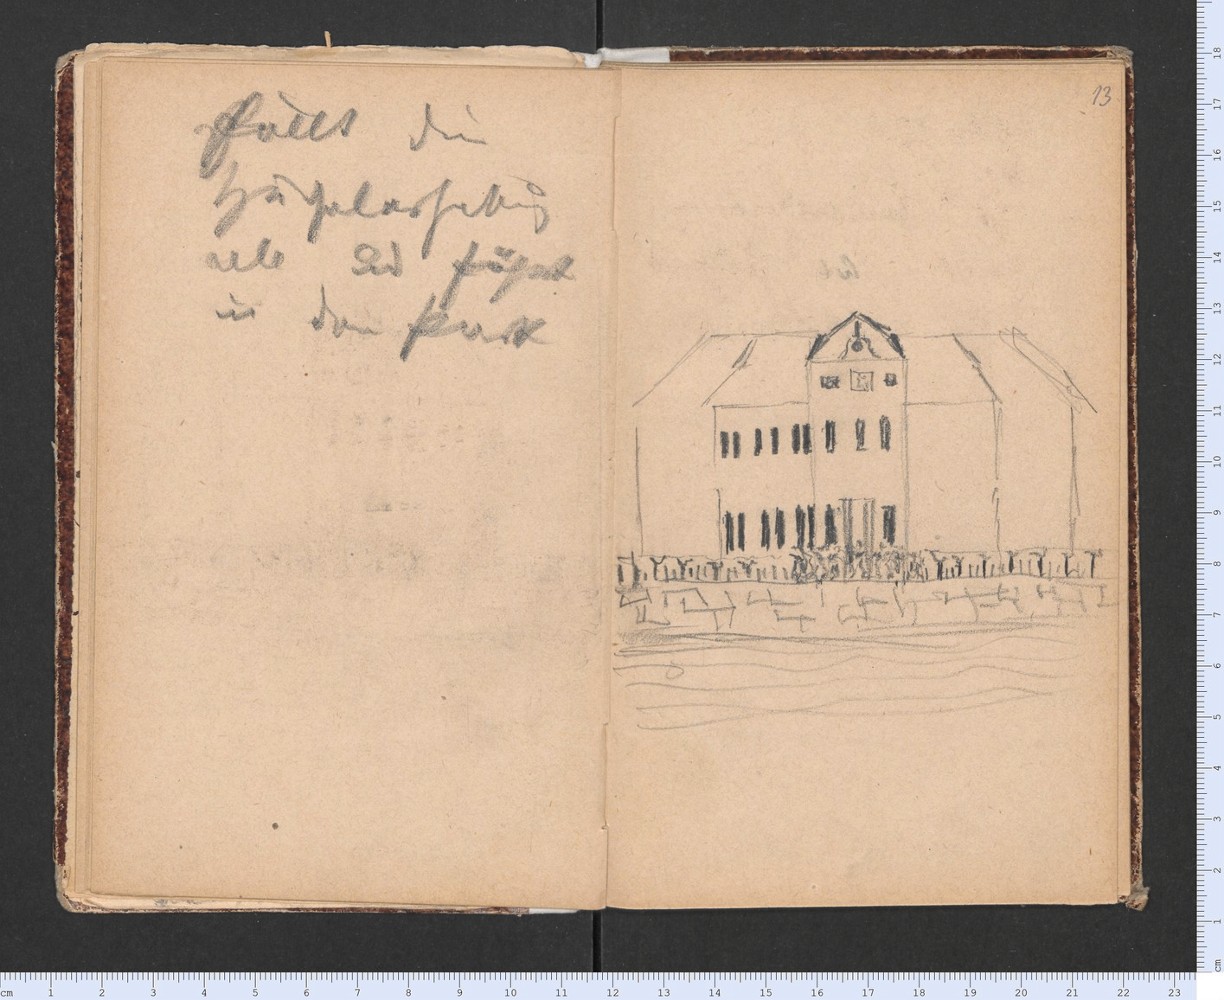 fällt die
Hügelerhebung
ab und führt
in den Park
13
cm 1 2 3 4 5 6 7 8 9 10 11 12 13 14 15 16 17 18 19 20 21 22 23
18
17
16
15
14
13
12
11
10
9
8
7
6
5
4
3
2
1
cm